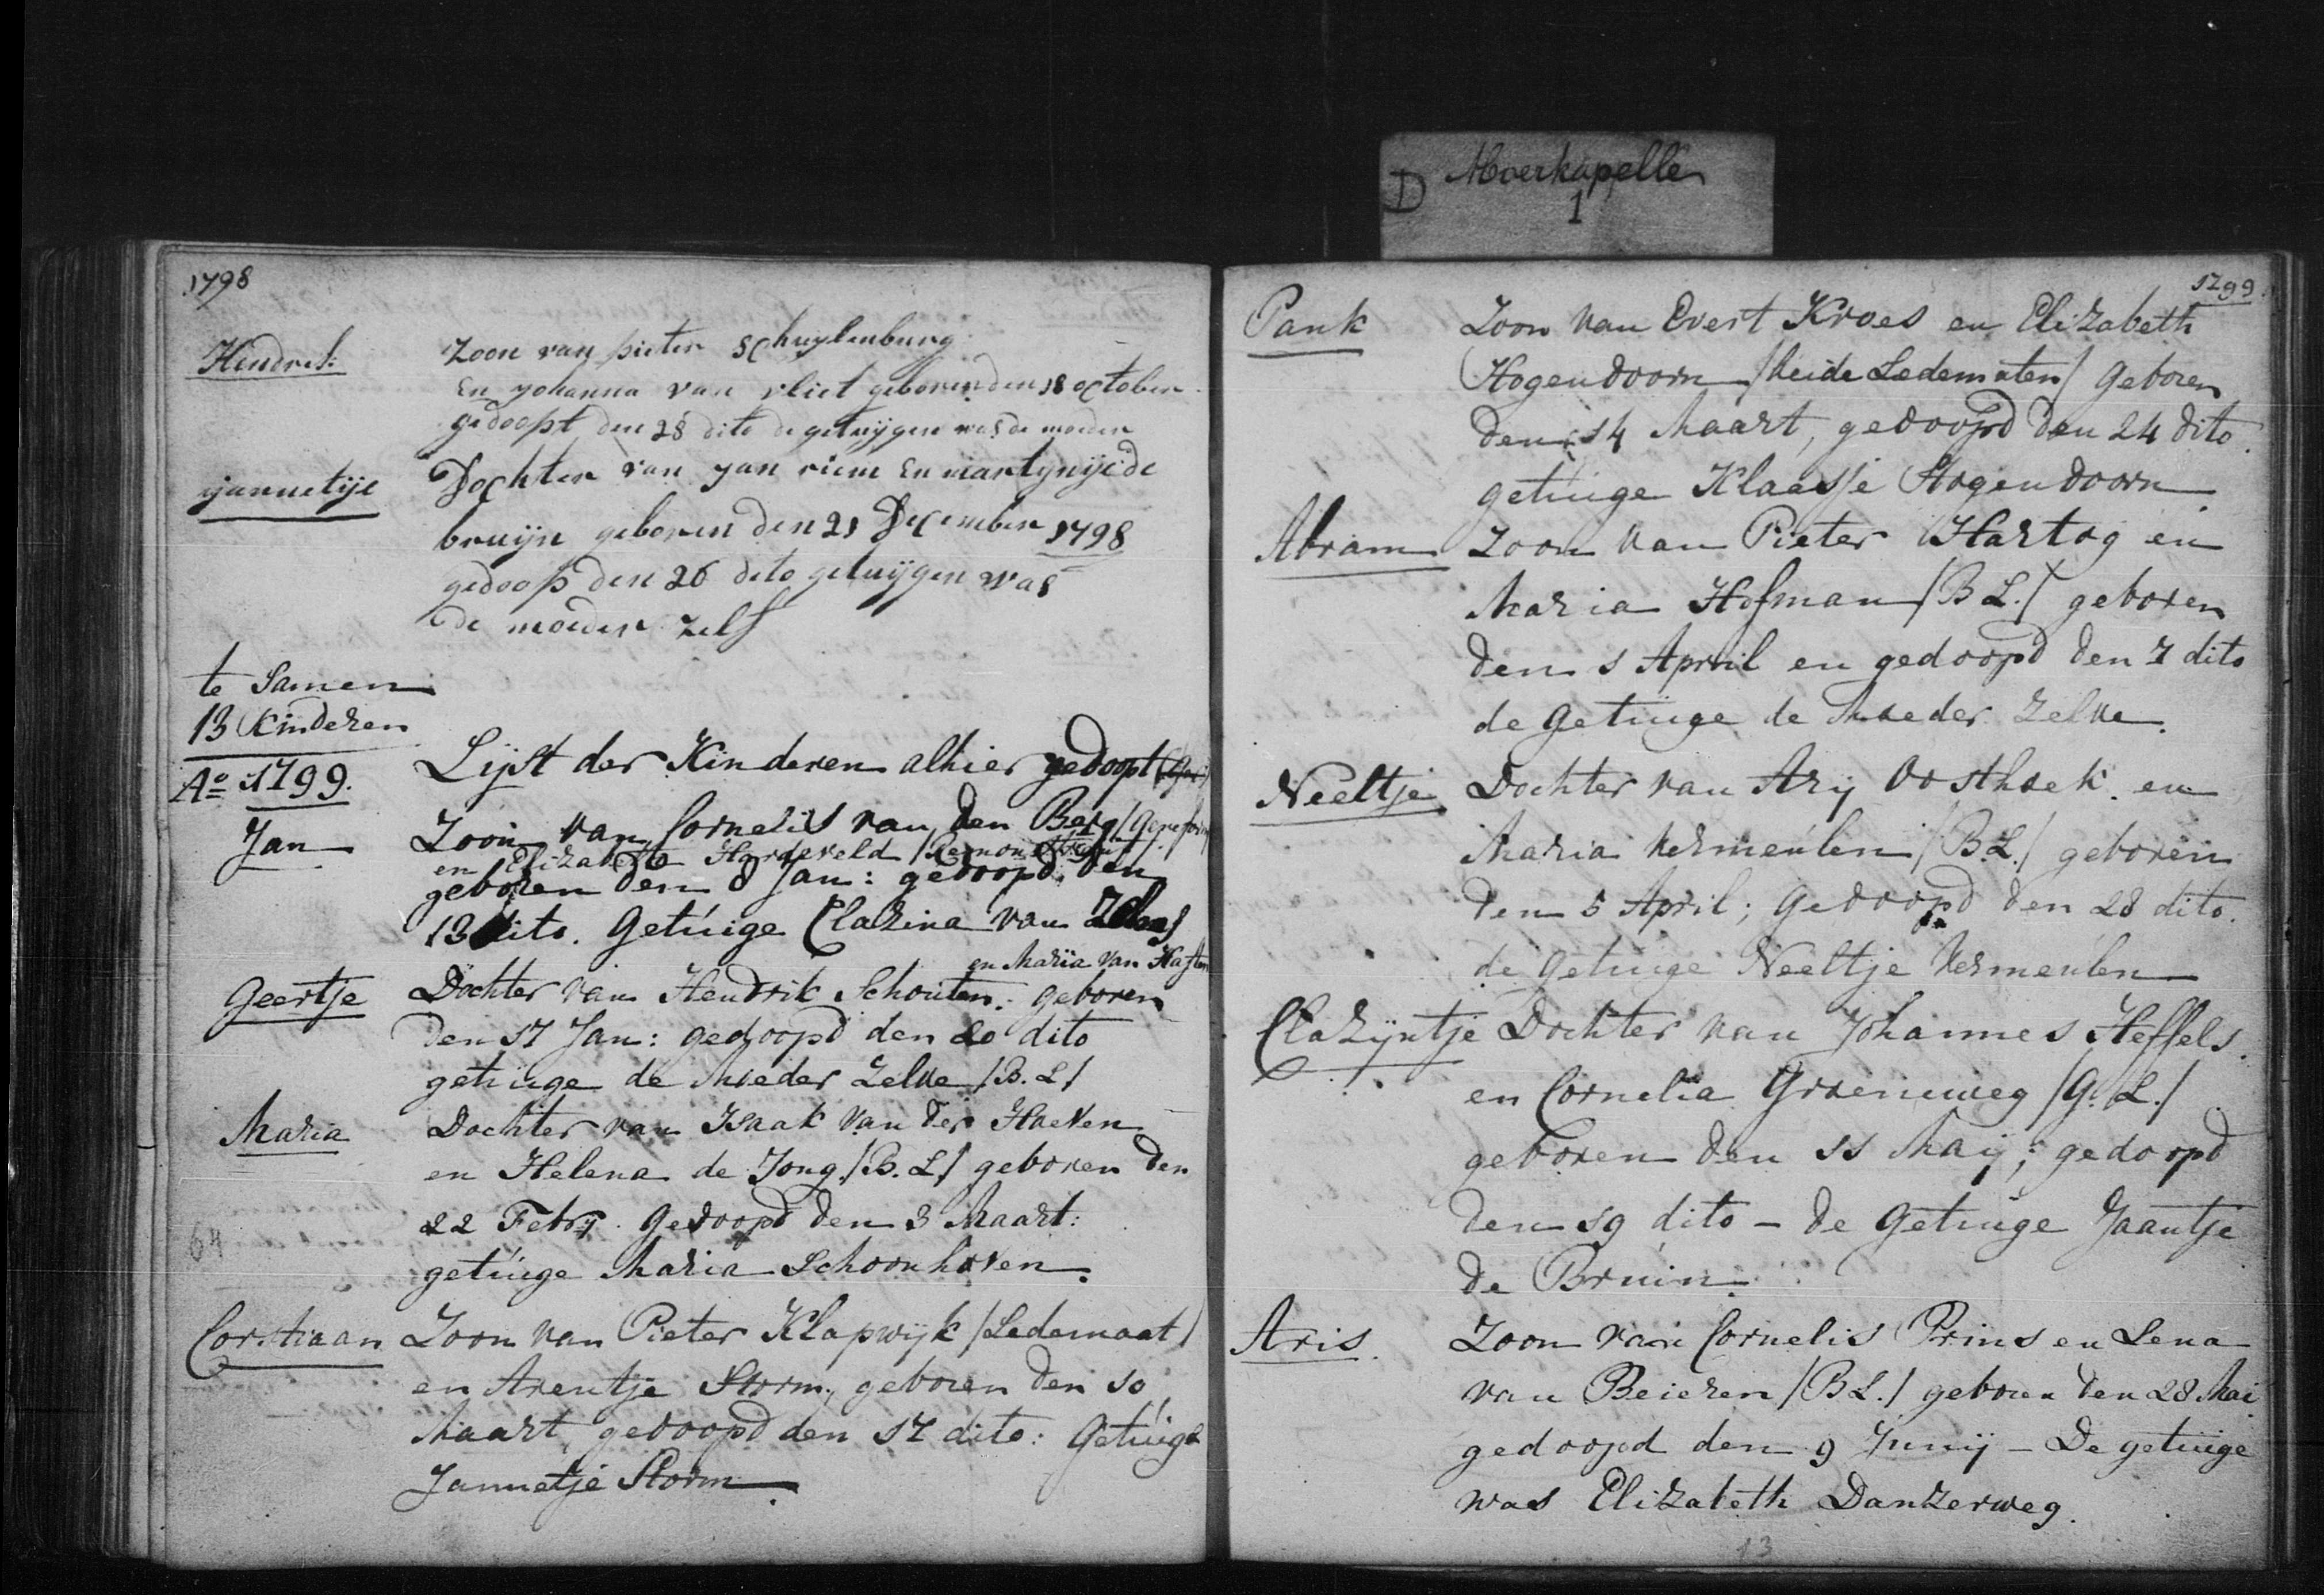 D Moerkapelle
1
1798
Hendrik zoon van pieter schuylenburg
En yohanna van vliet geboren den 18 october
gedoopt den 28 dito de getuijgen was de moeder
yannetije Dochter van yan riem En martynije de
bruijn geboren den 21 December 1798
gedoop den 26 dito getuijgen was
de moeder zelf
te Samen
13 Kinderen
Ao 1799. Lijst der Kinderen alhier gedoopt
Jan Zoon van Cornelis van den Berg
en Elizabeth Hardeveld
geboren den 8 Jan: gedoopd den
13 dito. Getuige Clazina van
en Marija van Haften
Geertje Dochter van Hendrik Schouten. geboren
den 17 Jan: gedoopd den 20 dito
getuige de Moeder Zelve /B. L/
Maria Dochter van Isaak van der Hoeven
en Helena de Jong /B. L/ geboren den
22 Febrij. Gedoopd den 3 Maart:
getuige Maria Schoonhoven.
64
Corstiaan Zoon van Pieter Klapwijk /Ledemaat/
en Arentje Storm, geboren den 10
Maart, gedoopd den 17 dito: Getuige
Jannetje Storm.
1799.
Pank Zoon van Evert Kroes en Elizabeth
Hogendoorn /beide Ledematen/ Geboren
den 14 Maart, gedoopd den 24 dito.
getuige Klaasje Hogendoorn.
Abram Zoon van Pieter Hartog en
Maria Hofman /B L./ geboren
den 1 April en gedoopd den 7 dito
de getuige de Moeder Zelve.
Neeltje Dochter van Arij Oosthoek. en
Maria Vermeulen /B.L./ geboren
den 5 April; Gedoopd den 28 dito.
de getuige Neeltje Vermeulen
Clazijntje Dochter van Johannes Heffels.
en Cornelia Groeneweg /G. L./
geboren den 11 Maij; gedoopd
den 19 dito - de Getuige Jaantje
de Bruin.
Aris. Zoon van Cornelis Prins en Lena
van Beieren /B L./ geboren den 28 Mai
gedoopd den 9 Junij - De getuige
was Elizabeth Danzerweg.
13